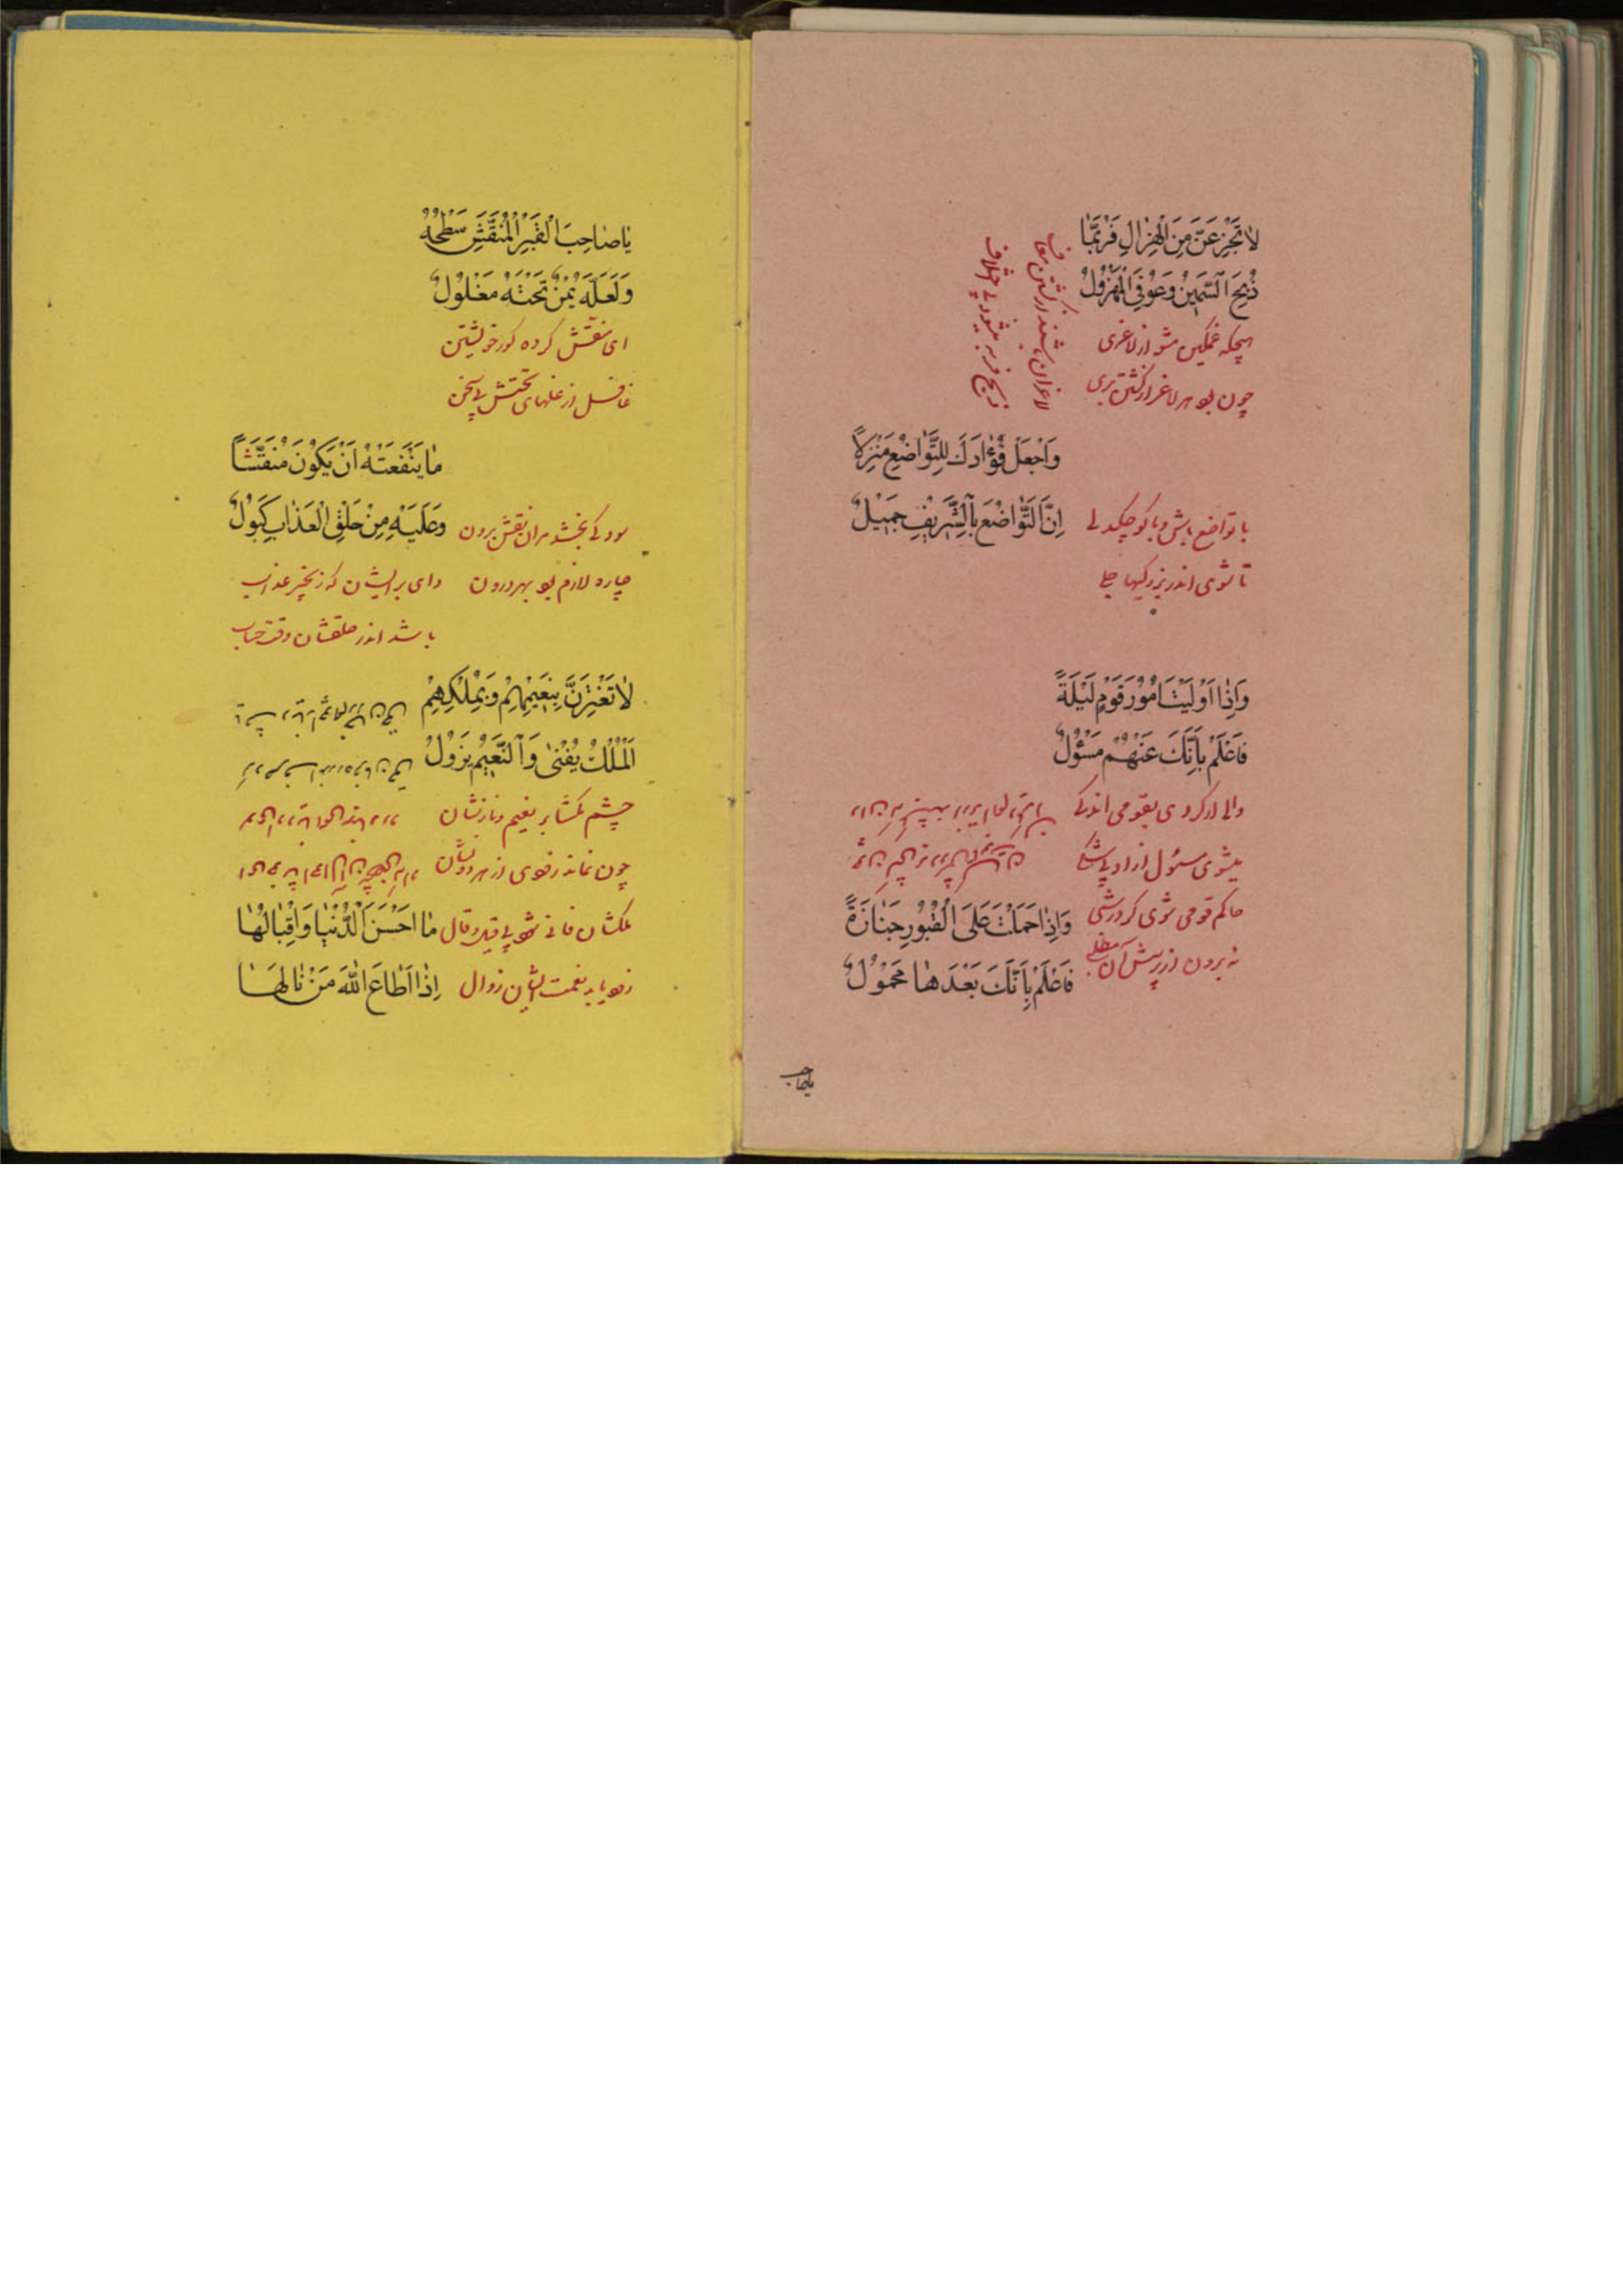 لٰا تَجْزَعَنَّ مِنَ الْهِزٰالِ فَرُبَّمٰا
ذُبِحَ السَّمِینُ وَعُوفِیَ الْمَهْزُولُ
هیچکه غمگین مشو از لاغری
چون بود هر لاغر از کشتن بری
لاغران باشند از کشتن معاف
ذبح فربه میشود بی اختلاف
وَاجْعَلْ فُؤٰادَكَ لِلتَّوٰاضُعِ مَنْزِلًا
اِنَّ التَّوٰاضُعَ بِالشَّرِیفِ جَمِیلُ
با تواضع باش و با کوچکدلی
تا شوی اندر بزرگیها جلی
وَاِذٰا وَلَیْتَ اُمُورَ قَوْمٍ لَیْلَةً
فَاعْلَمْ بِاَنَّكَ عَنْهُمْ مَسْؤُلُ
والی ار کردی بقومی اندکی
میشوی مسئول از او بی شکی
حاکم قومی شوی گر در شبی
نه برون از پرسش آن مطلبی
وَاِذٰا حَمَلْتَ عَلَی الْقُبُورِ جَنٰازَةً
فَاعْلَمْ بِاَنَّكَ بَعْدَهٰا مَحْمُولُ
یاصاحب
یٰا صٰاحِبَ الْقَبْرِ الْمُنَقَّشِ سَطْحُهُ
وَلَعَلَّهُ مِنْ تَحْتِهِ مَغْلُولُ
ای منقش کرده گور خویشتن
غافل از غلهای تحتش بی سخن
مٰا یَنْفَعَتْهُ اَنْ یَكُونَ مُنَقَّشًا
وَعَلَیْهِ مِنْ حَلَقِ الْعَذٰابِ كُبُولُ
سود کی بخشد مر آن نقش برون
چاره لازم بود بهر درون
وای بر ایشان که زنجیر عذاب
باشد اندر حلقشان وقت حساب
لٰا تَغْتَرِرَنَّ بِنَعِیمِهِمْ وَبِمُلْكِهِمْ
اَلْمُلْكُ یُفْنٰی وَالنَّعِیمُ یَزُولُ
چشم مگشا بر نعیم و نازشان
چون نماند زود وی از هر دو نشان
ملکشان فانی شود بی قیل و قال
زود یابد نعمت ایشان زوال
مٰا اَحْسَنَ الدُّنْیٰا وَاِقْبٰالَهٰا
اِذٰا اَطٰاعَ اللّٰهَ مَنْ نٰالَهٰا